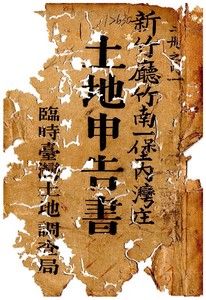 二冊之一
新竹廳竹南一堡內灣庄
土地申告書
臨時臺灣土地調查局